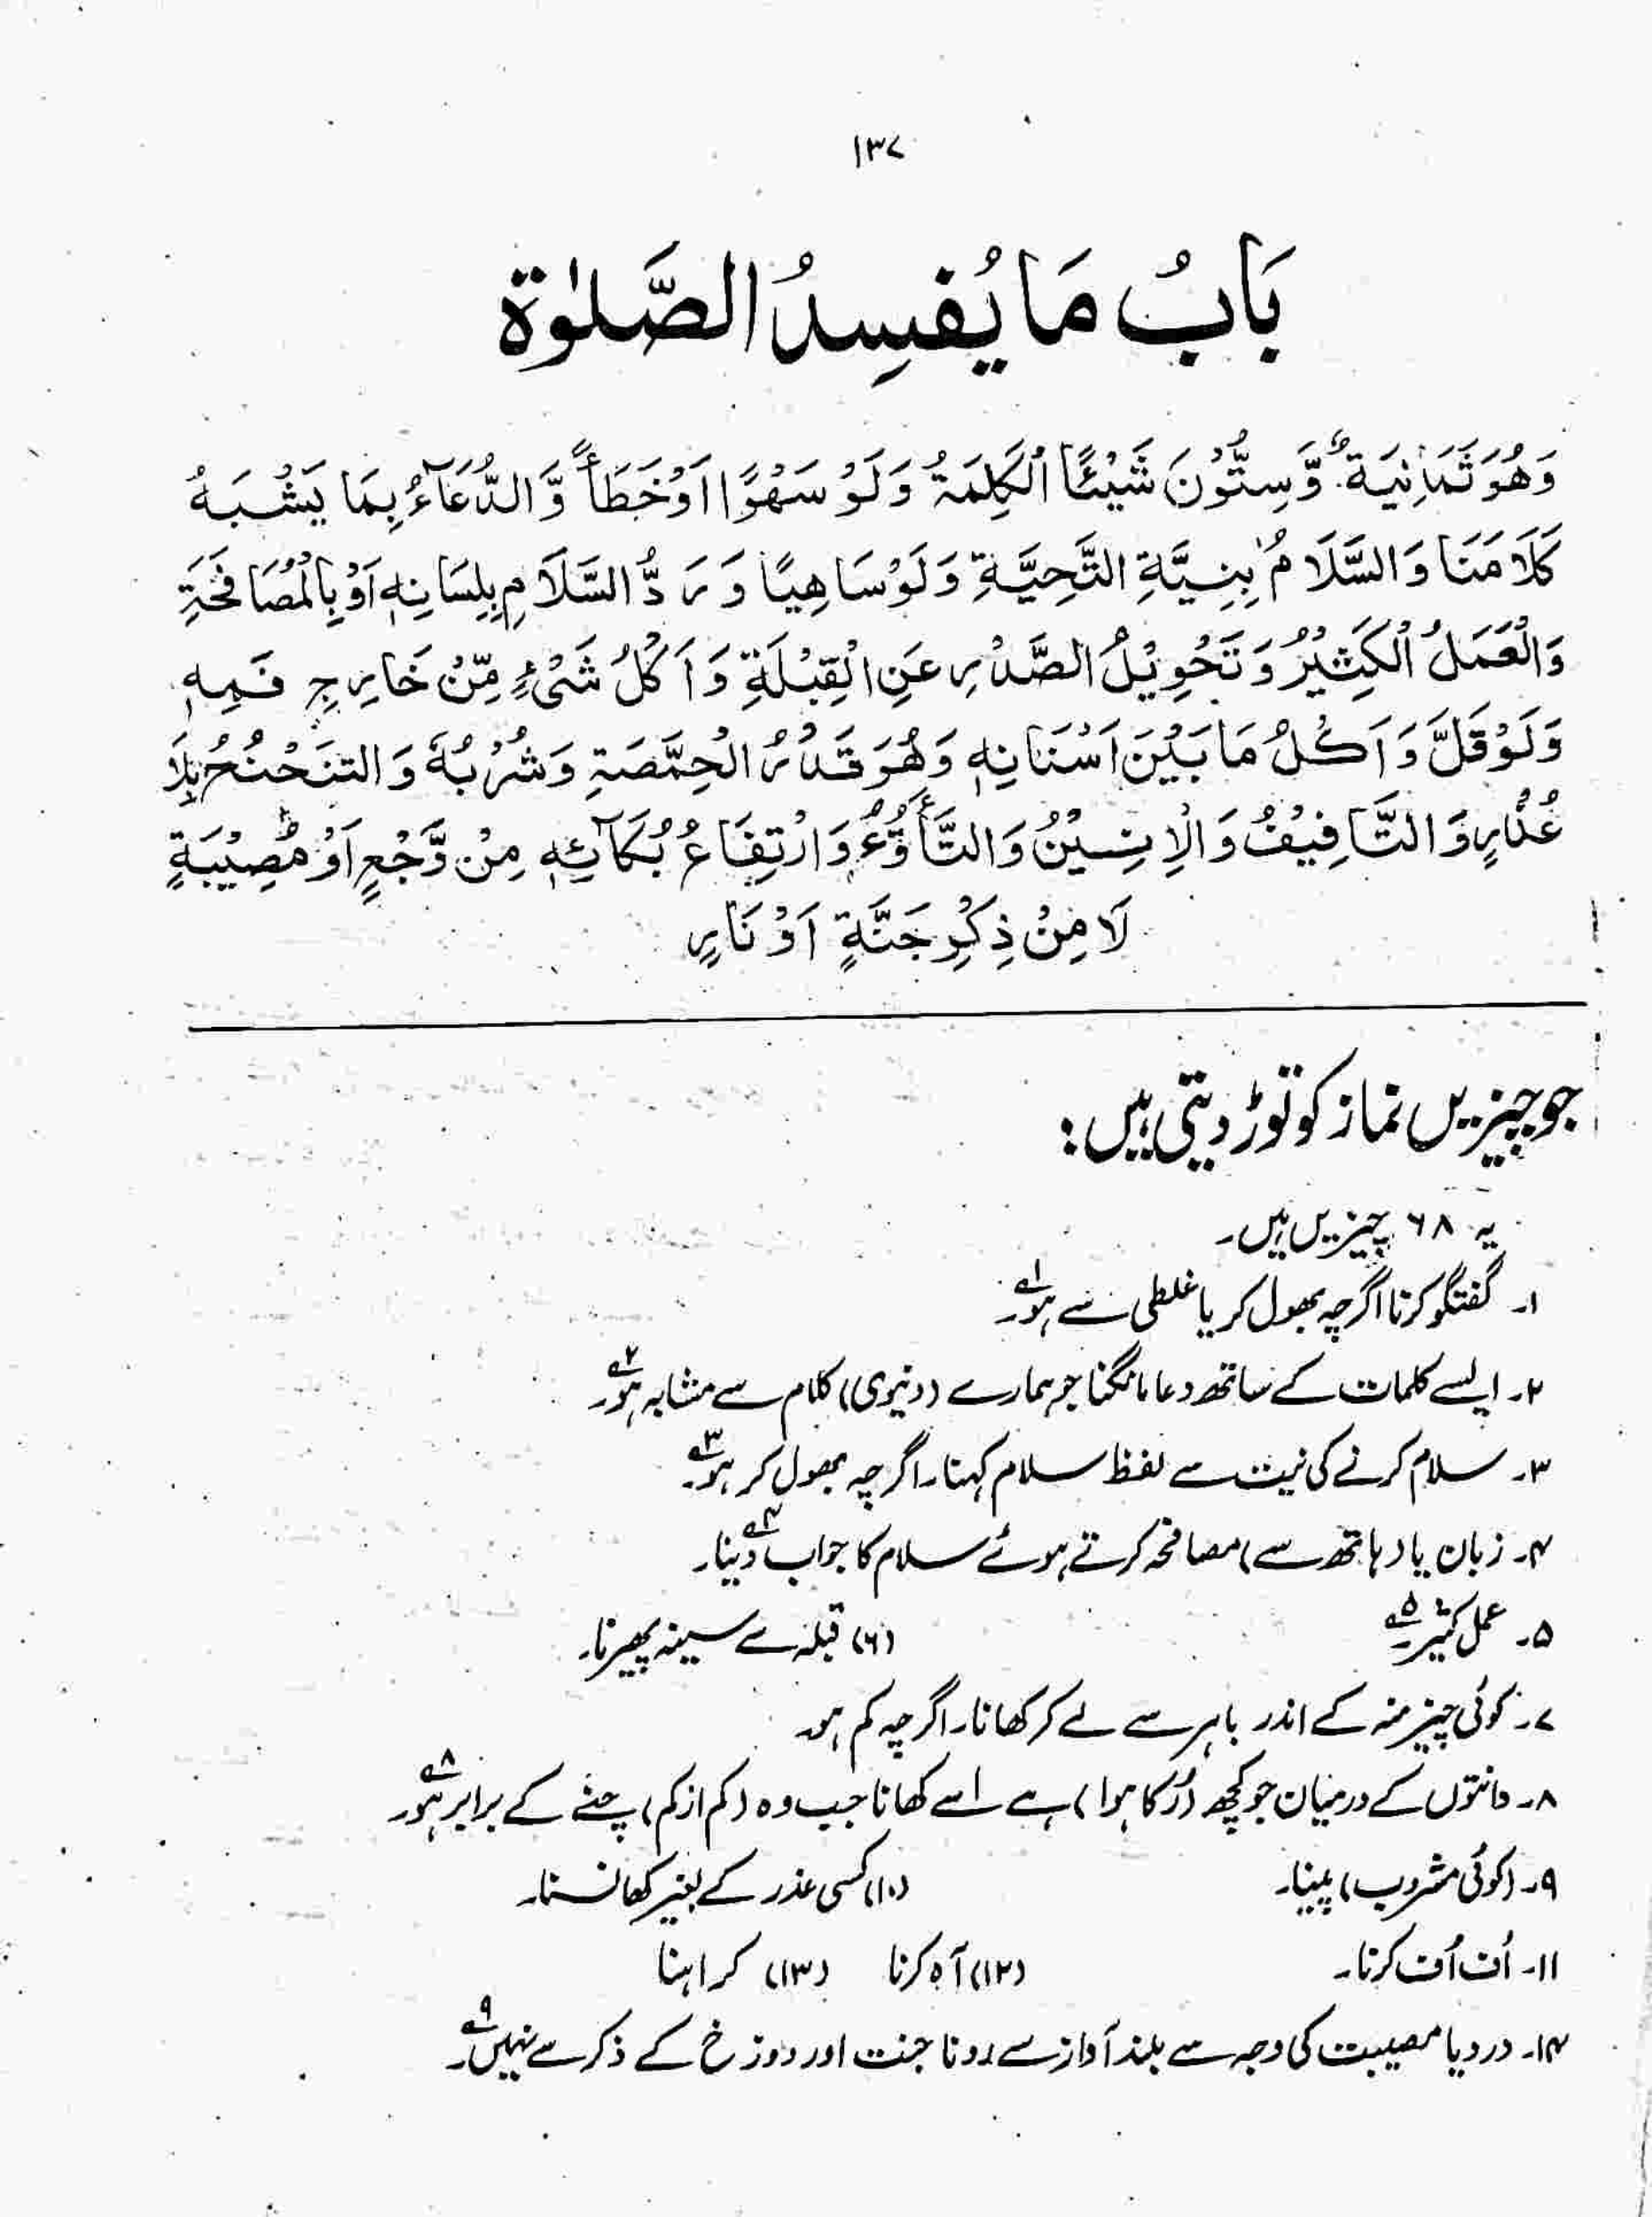 ۱۳۷
بَابُ مَا يُفسِدُ الصَّلٰوة
وَهُوَ ثَمَانِيَةٌ وَّسِتُّوْنَ شَيْئًا اَلْكَلِمَةُ وَلَوْ سَهْوًا اَوْ خَطَأً وَّالدُّعَآءُ بِمَا يَشْبَهُ
كَلَامَنَا وَالسَّلَامُ بِنِيَّةِ التَّحِيَّةِ وَلَوْ سَاهِيًا وَرَدُّ السَّلَامِ بِلِسَانِهٖ اَوْ بِالْمُصَافَحَةِ
وَالْعَمَلُ الْكَثِيْرُ وَتَحْوِيْلُ الصَّدْرِ عَنِ الْقِبْلَةِ وَاَكْلُ شَىْءٍ مِّنْ خَارِجِ فَمِهٖ
وَلَوْ قَلَّ وَاَكْلُ مَا بَيْنَ اَسْنَانِهٖ وَهُوَ قَدْرُ الْحِمَّصَةِ وَشُرْبُهٗ وَالتنَحْنُحُ بِلَا
عُذْرٍ وَالتَّافِيْفُ وَالْاِنِيْنُ وَالتَّأَوُّهُ وَارْتِفَاعُ بُكَآئِهٖ مِنْ وَّجْعٍ اَوْ مُصِيْبَةٍ
لَا مِنْ ذِكْرِ جَنَّةٍ اَوْ نَارٍ
جو چیزیں نماز کو توڑ دیتی ہیں:
یہ ۶۸ چیزیں ہیں۔
۱۔ گفتگو کرنا اگرچہ بھول کر یا غلطی سے ہو۔ ۱؎
۲۔ ایسے کلمات کے ساتھ دعا مانگنا جو ہمارے (دنیوی) کلام سے مشابہ ہو۔ ۲؎
۳۔ سلام کرنے کی نیت سے لفظ سلام کہنا۔ اگرچہ بھول کر ہو۔ ۳؎
۴۔ زبان یا (ہاتھ سے) مصافحہ کرتے ہوئے سلام کا جواب دینا۔ ۴؎
۵۔ عمل کثیر۔ ۵؎ (۶) قبلہ سے سینہ پھیرنا۔
۷۔ کوئی چیز منہ کے اندر باہر سے لے کر کھانا۔ اگرچہ کم ہو۔
۸۔ دانتوں کے درمیان جو کچھ (رُکا ہوا) ہے اسے کھانا جب وہ (کم از کم) چنے کے برابر ہو۔ ۸؎
۹۔ (کوئی مشروب) پینا۔ (۱۰) کسی عذر کے بغیر کھانسنا۔
۱۱۔ اُف اُف کرنا۔ (۱۲) آہ کرنا (۱۳) کراہنا
۱۴۔ درد یا مصیبت کی وجہ سے بلند آواز سے رونا جنت اور دوزخ کے ذکر سے نہیں۔ ۹؎